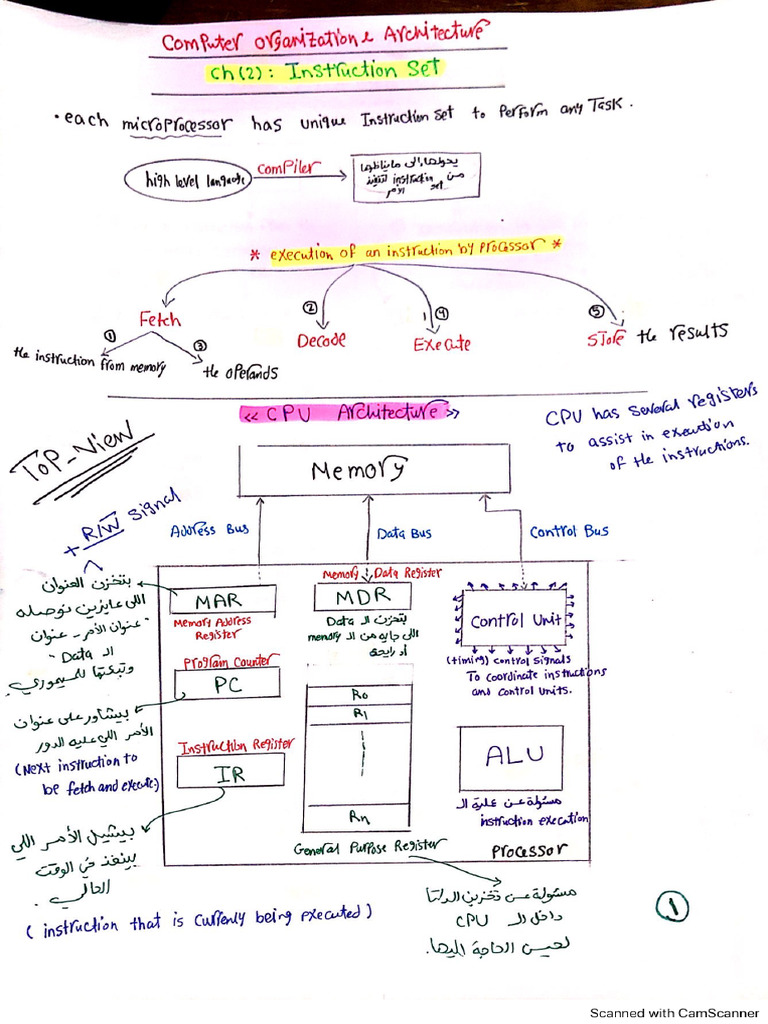 Computer Organization & Architecture
ch(2): Instruction Set
• each microprocessor has unique Instruction set to perform any Task.
high level language
compiler
يحولها إلى ما يناظرها
من instruction لتنفيذ
set الأمر
* execution of an instruction by processor *
Fetch
① the instruction from memory
③ the operands
② Decode
④ Execute
⑤ Store the results
<< CPU Architecture >>
CPU has several registers
to assist in execution
of the instructions.
Top-View
Memory
+ R/W signal
Address Bus
Data Bus
Control Bus
MAR
Memory Address
Register
بتخزن العنوان
اللي عايزين نوصله
"عنوان الأمر - عنوان
الـ Data "
وتبعتها للميموري.
Memory Data Register
MDR
بتخزن الـ Data
اللي جايه من الـ memory
أو رايحة
Control Unit
(timing) control signals
To coordinate instructions
and control units.
Program Counter
PC
بيشاور على عنوان
الأمر اللي عليه الدور
(Next instruction to
be fetch and execute)
R0
R1
Rn
General Purpose Register
Instruction Register
IR
بيشيل الأمر اللي
بيتنفذ في الوقت
الحالي.
( instruction that is currenly being executed )
ALU
مسئولة عن عملية الـ
instruction execution
Processor
مسئولة عن تخزين الداتا
داخل الـ CPU
لحين الحاجة إليها.
①
Scanned with CamScanner